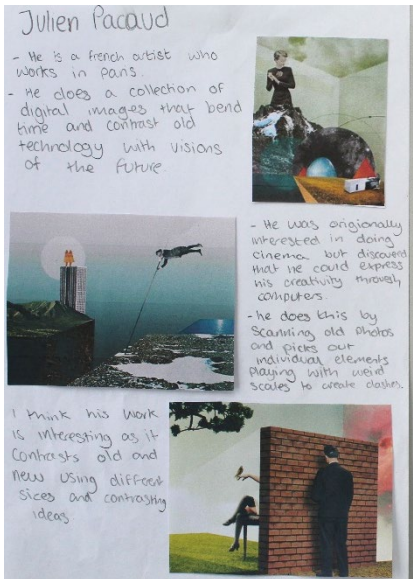 Julien Pacaud
- He is a french artist who
works in paris.
- He does a collection of
digital images that bend
time and contrast old
technology with visions
of the future.
- He was origionally
interested in doing
cinema but discoverd
that he could express
his creativity through
computers.
- he does this by
scanning old photos
and picks out
individual elements
playing with weird
scales to create clashes.
I think his work
is interesting as it
contrasts old and
new using different
sices and contrasting
ideas